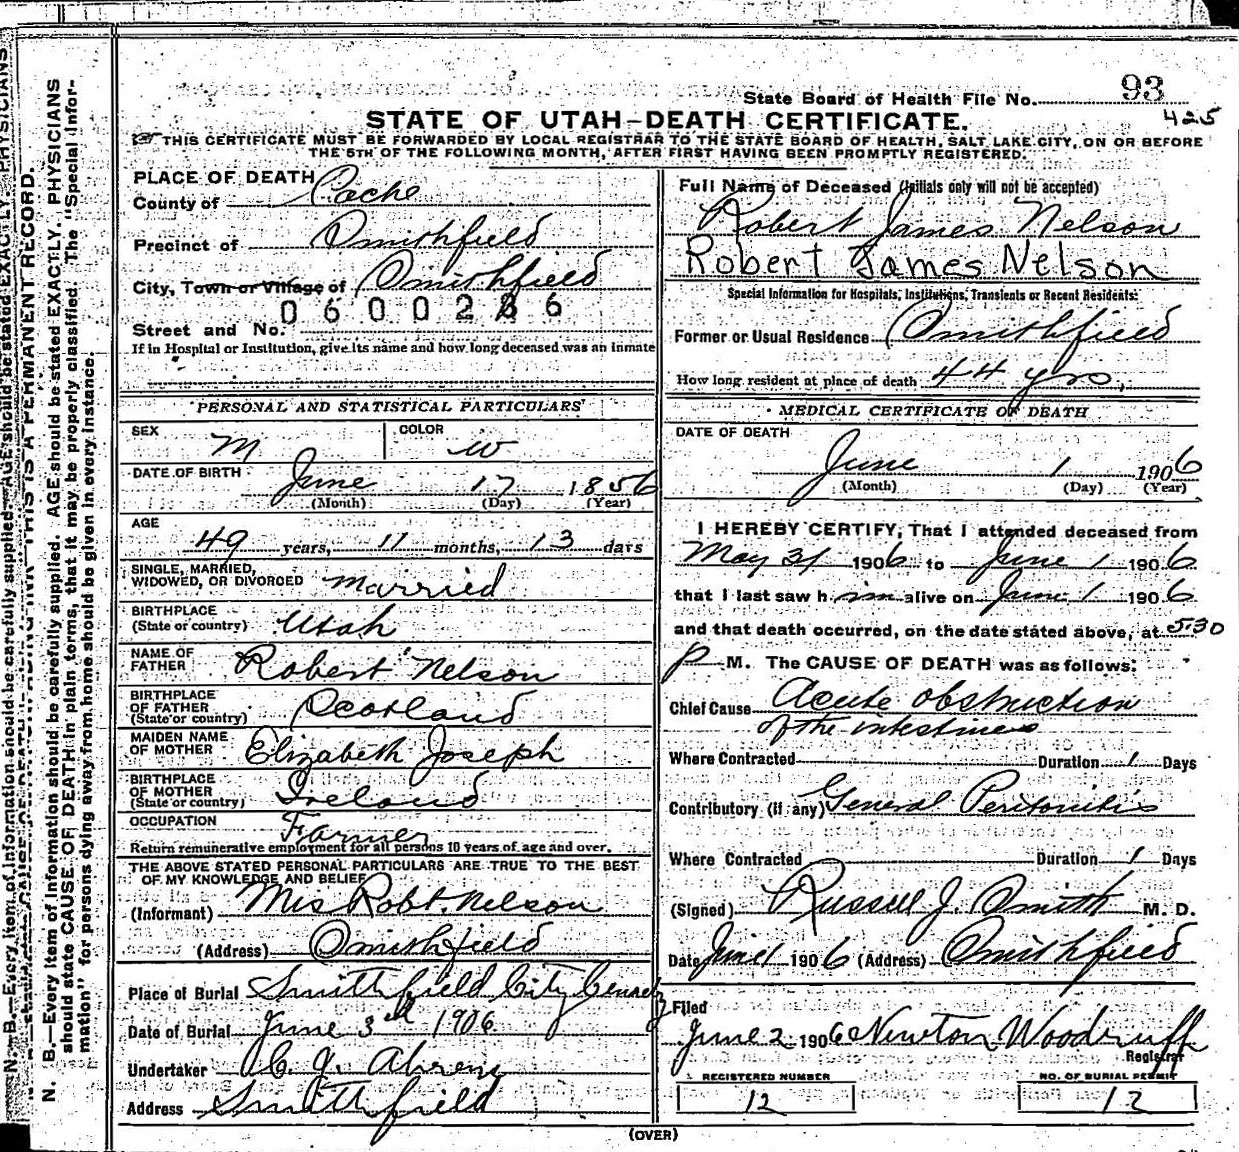 State Board of Health File No. 93
425
STATE OF UTAH—DEATH CERTIFICATE.
THIS CERTIFICATE MUST BE FORWARDED BY LOCAL REGISTRAR TO THE STATE BOARD OF HEALTH, SALT LAKE CITY, ON OR BEFORE
THE 5TH OF THE FOLLOWING MONTH, AFTER FIRST HAVING BEEN PROMPTLY REGISTERED.
PLACE OF DEATH
County of Cache
Precinct of Smithfield
City, Town or Village of Smithfield
0600286
Street and No.
If in Hospital or Institution, give its name and how long deceased was an inmate
PERSONAL AND STATISTICAL PARTICULARS
SEX M COLOR W
DATE OF BIRTH June 17 1856
(Month) (Day) (Year)
AGE
49 years, 11 months, 13 days
SINGLE, MARRIED,
WIDOWED, OR DIVORCED Married
BIRTHPLACE
(State or country) Utah
NAME OF
FATHER Robert Nelson
BIRTHPLACE
OF FATHER
(State or country) Scotland
MAIDEN NAME
OF MOTHER Elizabeth Joseph
BIRTHPLACE
OF MOTHER
(State or country) Ireland
OCCUPATION Farmer
Return remunerative employment for all persons 10 years of age and over.
THE ABOVE STATED PERSONAL PARTICULARS ARE TRUE TO THE BEST
OF MY KNOWLEDGE AND BELIEF
(Informant) Mrs Robt. Nelson
(Address) Smithfield
Place of Burial Smithfield City Cemety
Date of Burial June 3rd 1906
Undertaker C. J. Ahrens
Address Smithfield
Full Name of Deceased (Initials only will not be accepted)
Robert James Nelson
Robert James Nelson
Special Information for Hospitals, Institutions, Transients or Recent Residents:
Former or Usual Residence Smithfield
How long resident at place of death 44 yrs.
MEDICAL CERTIFICATE OF DEATH
DATE OF DEATH
June 1 1906
(Month) (Day) (Year)
I HEREBY CERTIFY, That I attended deceased from
May 31 1906 to June 1 1906
that I last saw him alive on June 1 1906
and that death occurred, on the date stated above, at 5.30
P M. The CAUSE OF DEATH was as follows:
Chief Cause Acute obstruction
of the intestines
Where Contracted Duration 1 Days
Contributory (if any) General Peritonitis
Where Contracted Duration 1 Days
(Signed) Russell J. Smith M. D.
Date June 1 1906 (Address) Smithfield
Filed
June 2 1906 Newton Woodruff
Registrar
REGISTERED NUMBER
12
NO. OF BURIAL PERMIT
12
(OVER)
N. B.—Every item of information should be carefully supplied. AGE should be stated EXACTLY. PHYSICIANS
should state CAUSE OF DEATH in plain terms, that it may be properly classified. The "Special Infor-
mation" for persons dying away from home should be given in every instance.
THIS IS A PERMANENT RECORD.
N. B.—Every item of information should be carefully supplied. AGE should be stated EXACTLY. PHYSICIANS